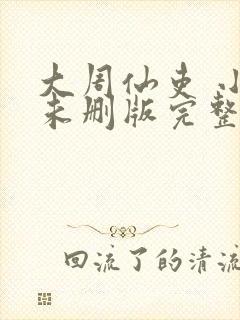 大周仙吏 小
未删版完整
回流了的清流